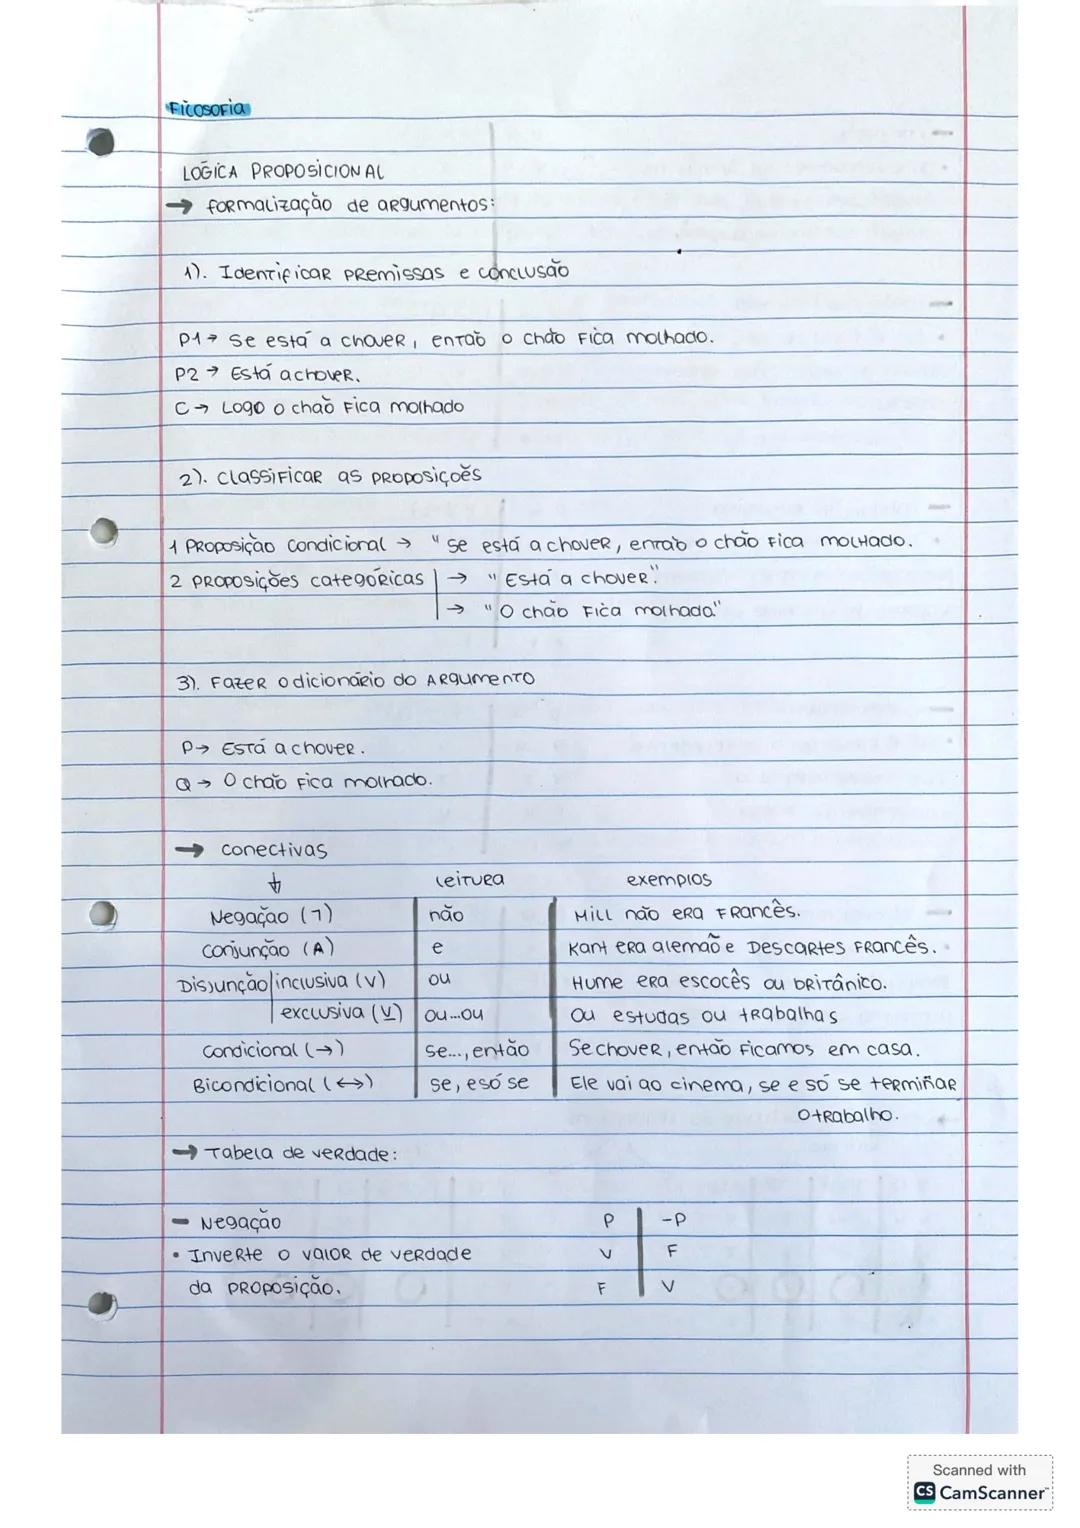 Filosofia
LÓGICA PROPOSICIONAL
→ formalização de argumentos:
1). Identificar premissas e conclusão
P1 → Se está a chover, então o chão fica molhado.
P2 → Está a chover.
C → Logo o chão fica molhado
2). Classificar as proposições
1 Proposição Condicional → "Se está a chover, então o chão fica molhado.
2 proposições categóricas → "Está a chover."
→ "O chão fica molhado."
3). Fazer o dicionário do Argumento
P → Está a chover.
Q → O chão fica molhado.
→ conectivas
↓ leitura exemplos
Negação (¬) não Mill não era Francês.
Conjunção (∧) e Kant era alemão e Descartes Francês.
Disjunção inclusiva (∨) ou Hume era escocês ou britânico.
exclusiva (⊻) ou...ou Ou estudas ou trabalhas
Condicional (→) se..., então Se chover, então ficamos em casa.
Bicondicional (↔) se, e só se Ele vai ao cinema, se e só se terminar
o trabalho.
→ Tabela de verdade:
- Negação P -P
• Inverte o valor de verdade V F
da proposição. F V
Scanned with
CS CamScanner